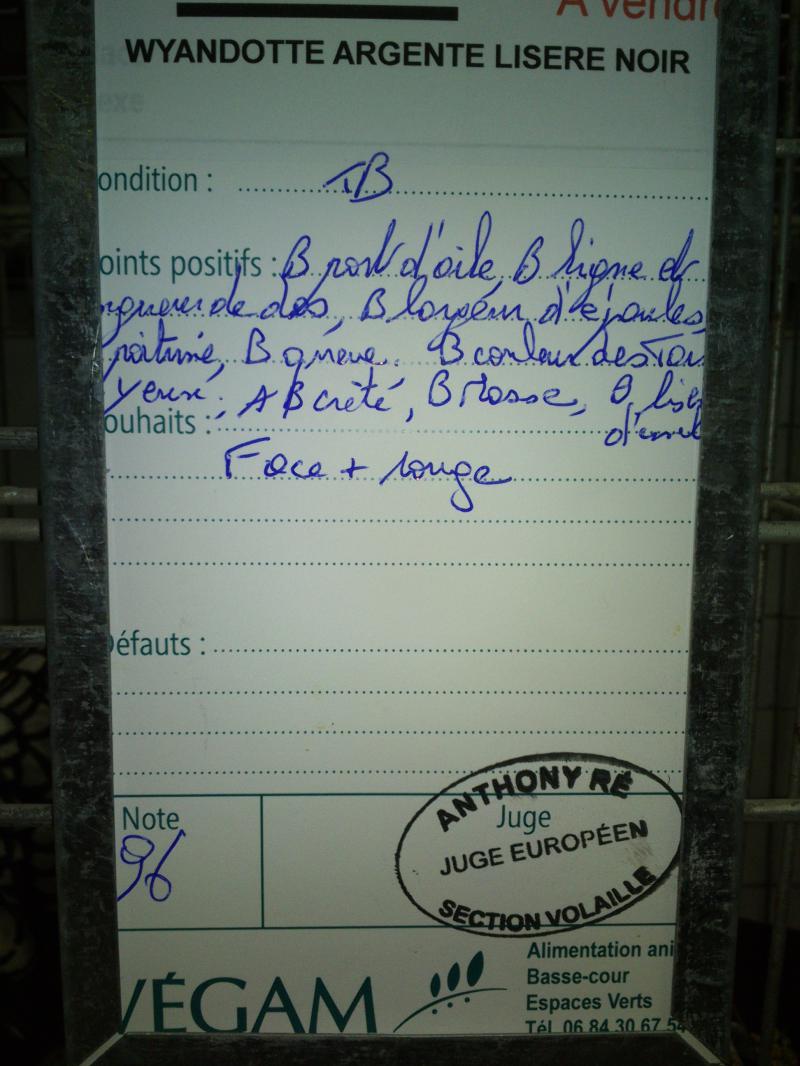 A vendr
WYANDOTTE ARGENTE LISERE NOIR
exe
ondition : TB
oints positifs : B port d'aile, B ligne et
ngueur de dos, B largeur d'épaules,
poitrine, B queue. B couleur des Tar
Yeux, AB crête, B Masse, B lise
d'ensel
ouhaits :
Face + rouge
Défauts :
Note
96
Juge
ANTHONY RÉ
JUGE EUROPÉEN
SECTION VOLAILLE
VÉGAM
Alimentation ani
Basse-cour
Espaces Verts
Tél. 06 84 30 67 54